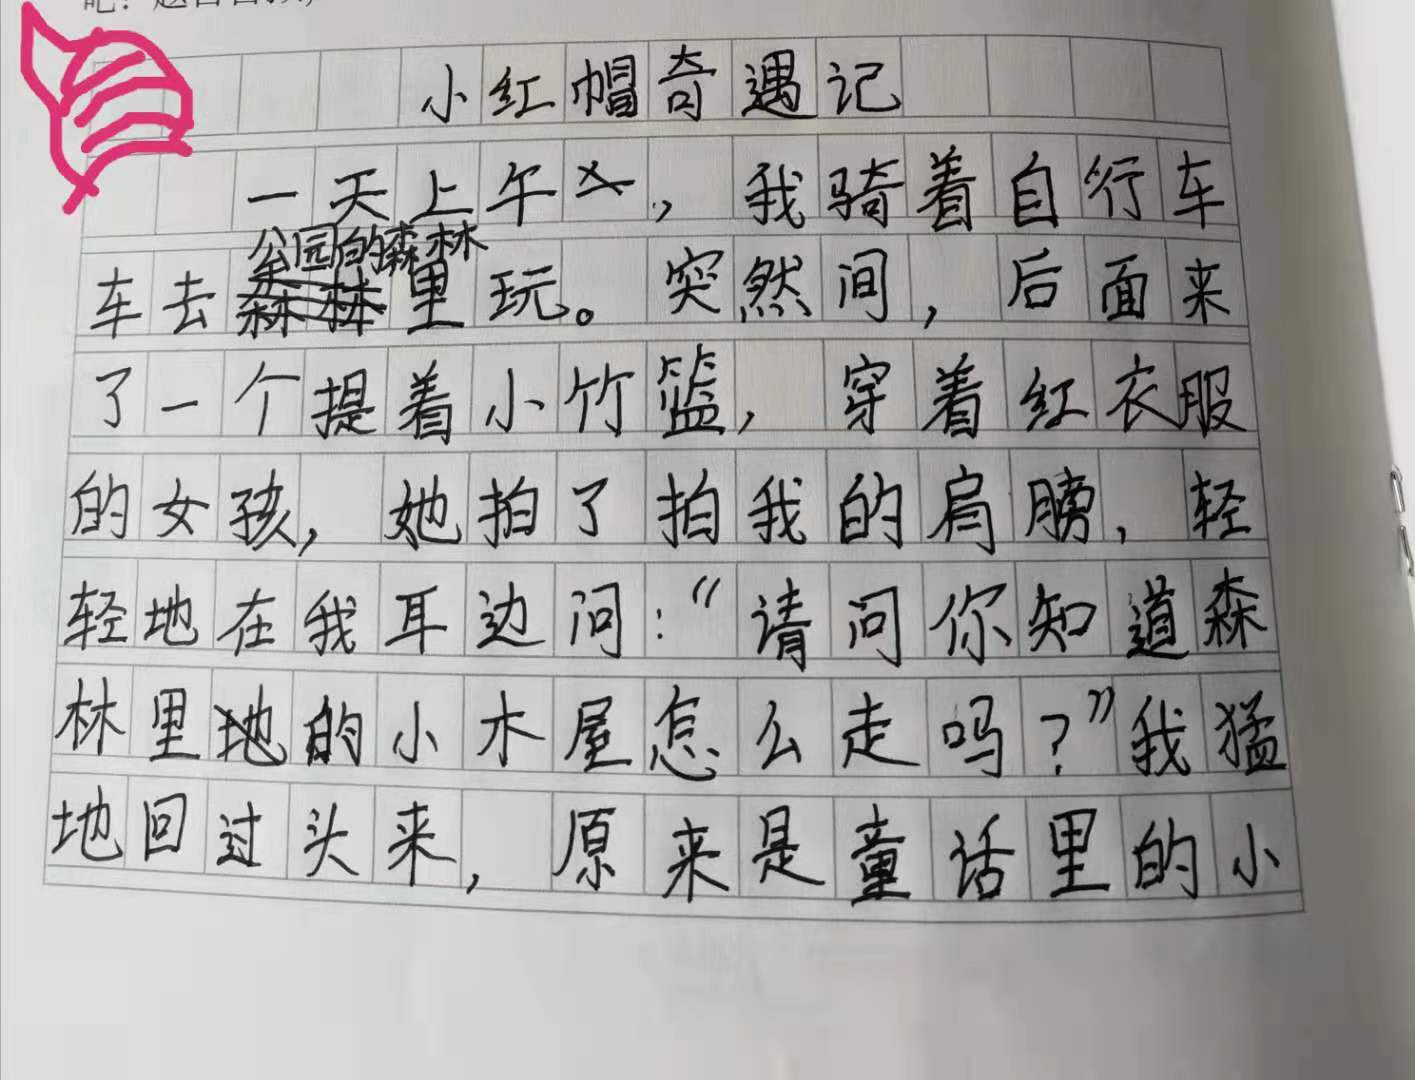 小红帽奇遇记
一天上午，我骑着自行车
车去公园的森林里玩。突然间，后面来
了一个提着小竹篮，穿着红衣服
的女孩，她拍了拍我的肩膀，轻
轻地在我耳边问：“请问你知道森
林里地的小木屋怎么走吗？”我猛
地回过头来，原来是童话里的小